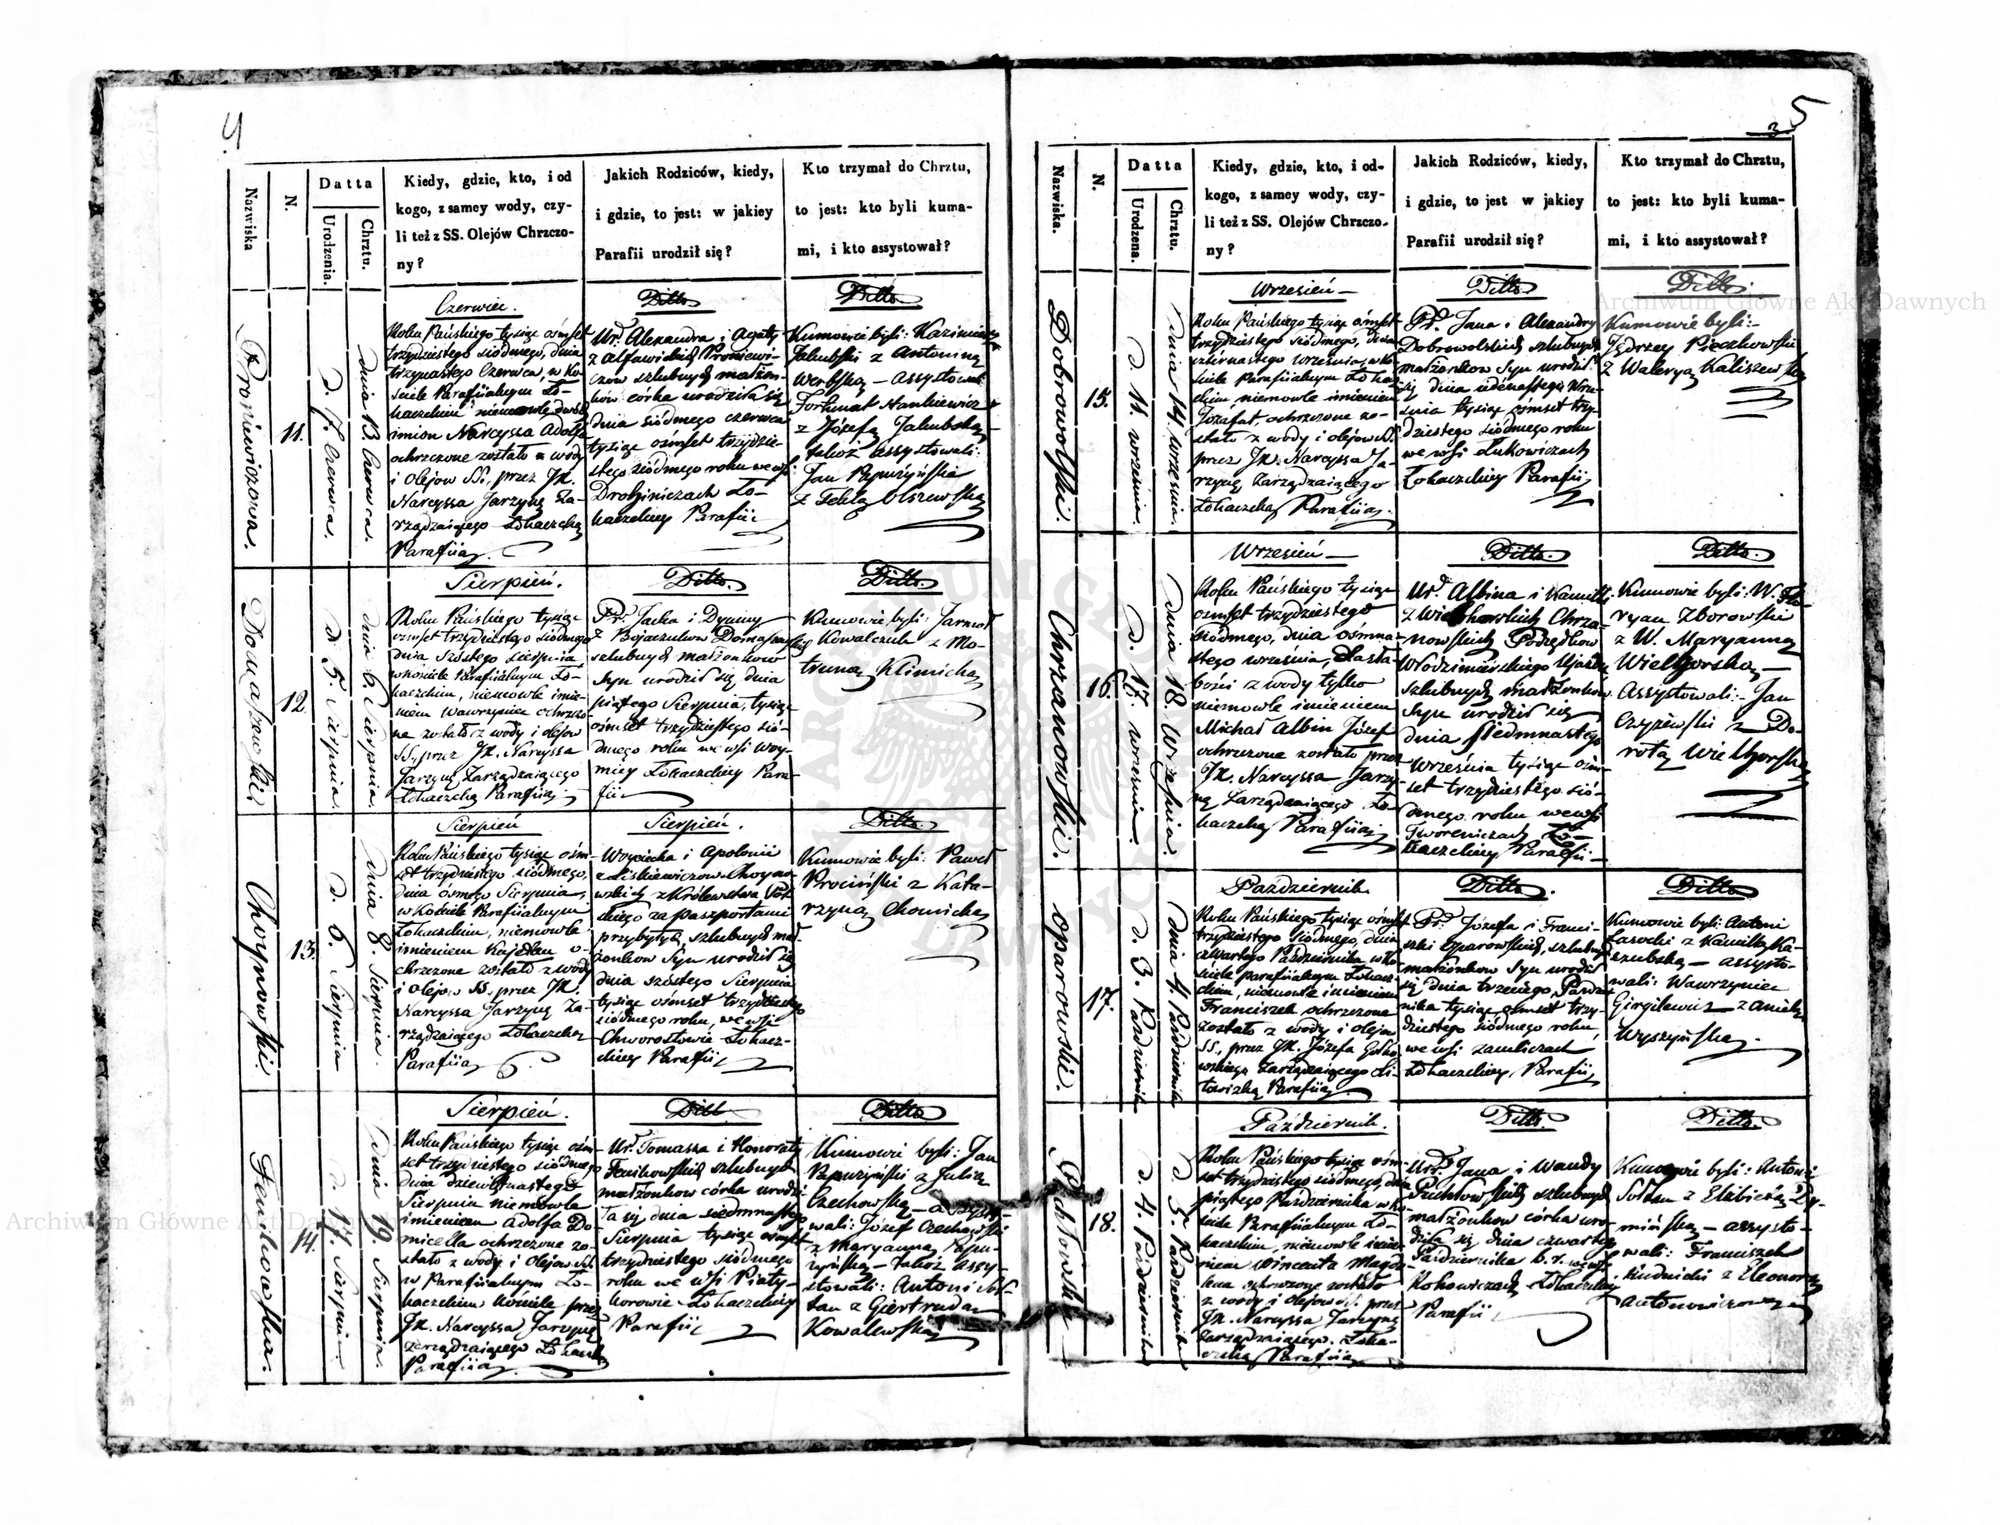 4
Nazwiska
N.
Datta
Urodzenia.
Chrztu.
Kiedy, gdzie, kto, i od
kogo, z samey wody, czy-
li też z SS. Olejów Chrzczo-
ny?
Jakich Rodziców, kiedy,
i gdzie, to jest: w jakiey
Parafii urodził się?
Kto trzymał do Chrztu,
to jest: kto byli kuma-
mi, i kto assystował?
Proniewiczowa.
11.
d. 7. Czerwca.
dnia 13. Czerwca.
Czerwiec.
Roku Pańskiego tysiąc ośmset
trzydziestego siódmego, dnia
trzynastego Czerwca, w Ko-
ściele Parafiialnym Ło-
kaczckim niemowle dwóch
imion Narcyssa Adolfa
ochrzczone zostało z wody
i olejow SS. przez JX.
Narcyssa Jarzynę Za-
rządzaiącego Łokaczcką
Parafiią.
Ditto
Ur. Alexandra i Agaty
z Proniewi-
czow szlubnych małżon-
ków córka urodziła się
dnia siódmego czerwca
tysiąc ośmset trzydzie-
stego siódmego roku we wsi
Ło-
kaczckiey Parafii
Ditto
Kumowie byli: Kazimierz
Jakubski z Antoniną
Werbską – assystowali
Fortunat Stankiewicz
z Józefą Jakubską
takoż assystowali:
Jan Papużyński
z Teklą Olszewską
Domaszewski.
12.
d. 5. Sierpnia.
dnia 6. Sierpnia.
Sierpień.
Roku Pańskiego tysiąc
ośmset trzydziestego siódmego
dnia szóstego sierpnia
w kościele Parafiialnym Ło-
kaczckim, niemowle imie-
niem Wawrzyniec ochrzczo-
ne zostało z wody i olejow
SS. przez JX. Narcyssa
Jarzynę Zarządzaiącego
Łokaczcką Parafiią.
Ditto.
Pr. Jacka i
z
szlubnych małżonkow
syn urodził się dnia
piątego Sierpnia, tysiąc
ośmset trzydziestego sió-
dmego roku we wsi Woy-
micy Łokaczckiey Para-
fii
Ditto.
Kumowie byli: Jarmoł
Kowalczuk z Mo-
truną Klimichą
Choynowski.
13.
d. 6. Sierpnia
dnia 8. Sierpnia.
Sierpień
Roku Pańskiego tysiąc ośm-
set trzydziestego siódmego,
dnia ósmego Sierpnia,
w Kościele Parafiialnym
Łokaczckim, niemowle
imieniem Kajetan o-
chrzczone zostało z wody
i olejow SS. przez JX.
Narcyssa Jarzynę Za-
rządzaiącego Łokaczcką
Parafiią
Sierpień.
Woyciecha i Apolonii
z Leskiewiczow Choyno-
wskich z Królewstwa Pol-
skiego za paszportami
przybyłych, szlubnych mał-
żonkow Syn urodził się
dnia szóstego Sierpnia
tysiąc ośmset trzydziestego
siódmego roku, we wsi
Chworostowie Łokacz-
ckiey Parafii
Ditto.
Kumowie byli: Paweł
Prociński z Kata-
rzyną Chomichą
14.
d. 17. Sierpnia.
dnia 19. Sierpnia.
Sierpień.
Roku Pańskiego tysiąc ośm-
set trzydziestego siódmego
dnia dziewiętnastego
Sierpnia niemowle
imieniem Adolfa Do-
micella ochrzczone zo-
stało z wody i olejów SS.
w Parafiialnym Ło-
kaczckim kościele przez
JX. Narcyssa Jarzynę
zarządzaiącego Łokaczcką
Parafiią
Ditto
Ur. Tomasza i Honoraty
szlubnych
małżonkow córka urodzi-
ła się dnia siedmnastego
Sierpnia tysiąc ośmset
trzydziestego siódmego
roku we wsi Piaty-
korowie Łokaczckiey
Parafii
Ditto
Kumowie byli: Jan
Papużyński z Julią
Czechowską – assysto-
wali: Józef Czechowski
z Maryanną Papu-
żyńską – takoż assy-
stowali: Antoni Soł-
tan z Giertrudą
Kowalewską
5
3
Nazwiska.
N.
Datta
Urodzena.
Chrztu.
Kiedy, gdzie, kto, i od-
kogo, z samey wody, czy-
li też z SS. Olejów Chrzczo-
ny?
Jakich Rodziców, kiedy,
i gdzie, to jest w jakiey
Parafii urodził się?
Kto trzymał do Chrztu,
to jest: kto byli kuma-
mi, i kto assystował?
Dobrowolski.
15.
d. 11. września.
dnia 14. września.
Wrzesień –
Roku Pańskiego tysiąc ośmset
trzydziestego siódmego, dnia
czternastego września, w Ko-
ściele Parafiialnym Łokacz-
ckim niemowle imieniem
Jozafat, ochrzczone zo-
stało z wody i olejow SS.
przez JX. Narcyssa Ja-
rzynę zarządzaiącego
Łokaczcką Parafiią.
Ditto
Pr. Jana i Alexandry
Dobrowolskich szlubnych
małżonkow Syn urodził
się dnia iedenastego Wrze-
śnia tysiąc ośmset trzy-
dziestego siódmego roku
we wsi Łukowiczach
Łokaczckiey Parafii
Ditto.
Kumowie byli:
Jędrzey Pieczkowski
z Waleryą Kaliszewską
Chrzanowski.
16.
d. 17. września.
dnia 18. Września.
Wrzesień –
Roku Pańskiego tysiąc
ośmset trzydziestego
siódmego, dnia ośmna-
stego września, dla sła-
bości z wody tylko
niemowle imieniem
Michał Albin Józef
ochrzczone zostało przez
JX. Narcyssa Jarzy-
nę Zarządzaiącego Ło-
kaczcką Parafiią
Ditto.
Ur. Albina i Kamilli
z Wielhorskich Chrza-
nowskich Podsędkow
Włodzimierskiego Ujazdu,
szlubnych małżonkow
syn urodził się
dnia siedmnastego
Września tysiąc ośm-
set trzydziestego sió-
dmego roku we wsi
Tworeniczach Ło-
kaczckiey Parafii –
Ditto.
Kumowie byli: W. Flo-
ryan Zborowski
z W. Maryanną
Wielhorską –
Assystowali: Jan
Czyżewski z Do-
rotą Wielhorską
Oparowski.
17.
d. 3. Października
dnia 4. Października
Październik
Roku Pańskiego tysiąc ośmset
trzydziestego siódmego, dnia
czwartego Października w Ko-
ściele parafiialnym Łokacz-
ckim, niemowle imieniem
Franciszek ochrzczone
zostało z wody i olejow
SS. przez JX. Józefa
zarządzaiącego
Parafiią.
Ditto.
Pr. Józefa i Franci-
szki Oparowskich, szlubnych
małżonkow Syn urodził
się dnia trzeciego, Paździer-
nika tysiąc ośmset trzy-
dziestego siódmego roku
we wsi Zamliczach
Łokaczckiey, Parafii
Ditto
Kumowie byli: Antoni
Lasocki z Kamillą Ka-
szubską – assysto-
wali: Wawrzyniec
Girgilewicz z Anielą
Wyszyńską.
Puchłowska
18.
d. 4. Października
d. 5. Października
Październik.
Roku Pańskiego tysiąc ośm-
set trzydziestego siódmego, dnia
piątego Października w Ko-
ściele Parafiialnym Ło-
kaczckim, niemowle imie-
niem Wincenta Magda-
lena ochrzczone zostało
z wody i olejow SS. przez
JX. Narcyssa Jarzynę
zarządzaiącego. Łoka-
czcką Parafiią
Ditto.
Ur. Jana i Wandy
Puchłowskich szlubnych
małżonkow córka uro-
dziła się dnia czwartego
Października b. r. we wsi
Kokowiczach Łokaczckiey
Parafii
Ditto.
Kumowie byli: Antoni
Sołtan z Elżbietą Dy-
mińską – assysto-
wali: Franciszek
Rudnicki z Eleonorą
Antonowiczową
Archiwum Główne Akt Dawnych
Archiwum Główne Akt Dawnych